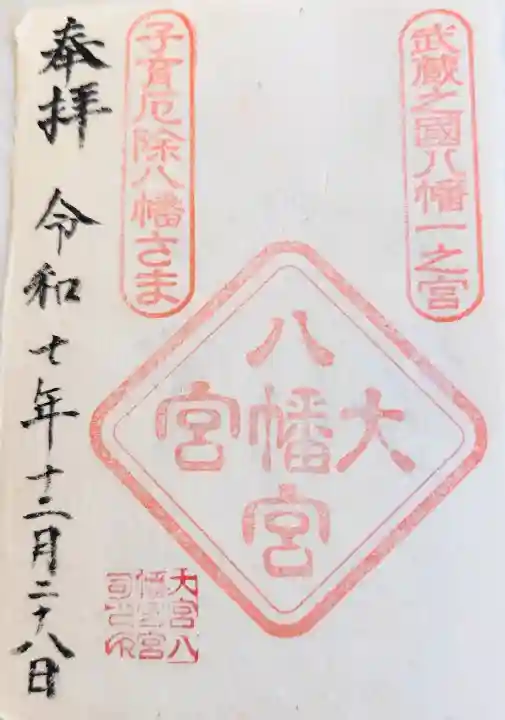 武蔵之國八幡一之宮
大
八幡宮
宮
子育厄除八幡さま
大宮八
幡宮
奉拝 令和七年十二月二十八日